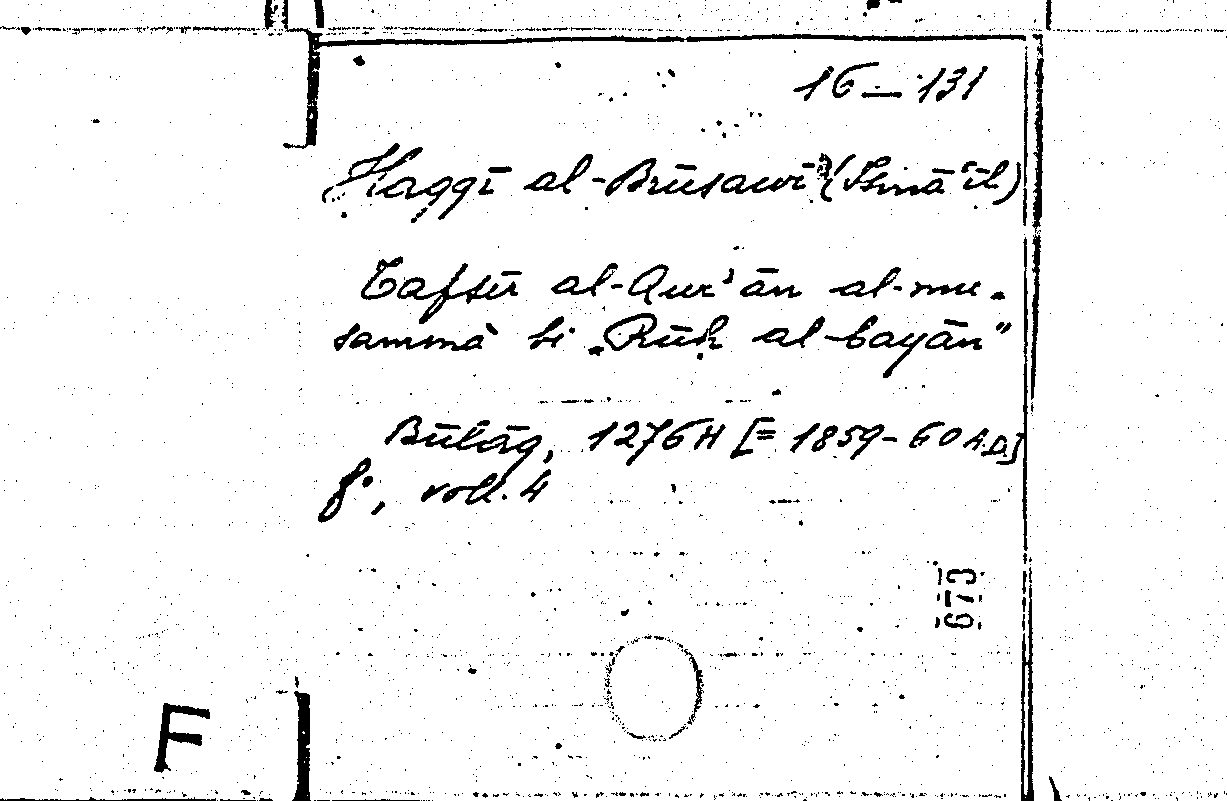 16 — 131
Haqqī al-Brūsawī (Ismā'īl)
Tafsīr al-Qur'ān al-mu-
sammà bi „Rūḥ al-bayān"
Būlāq, 1276 H [= 1859-60 A.D.]
f°, voll. 4
673
F